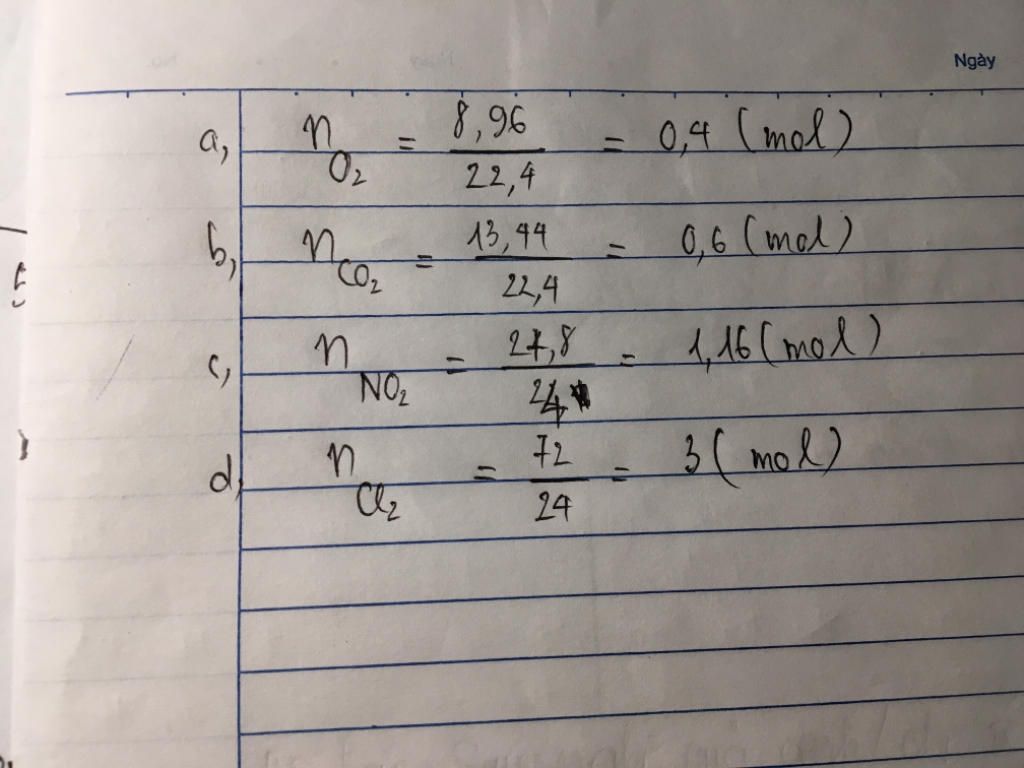 Ngày
a, n O₂ = 8,96 / 22,4 = 0,4 (mol)
b, n CO₂ = 13,44 / 22,4 = 0,6 (mol)
c, n NO₂ = 27,8 / 24 = 1,16 (mol)
d, n Cl₂ = 72 / 24 = 3 (mol)